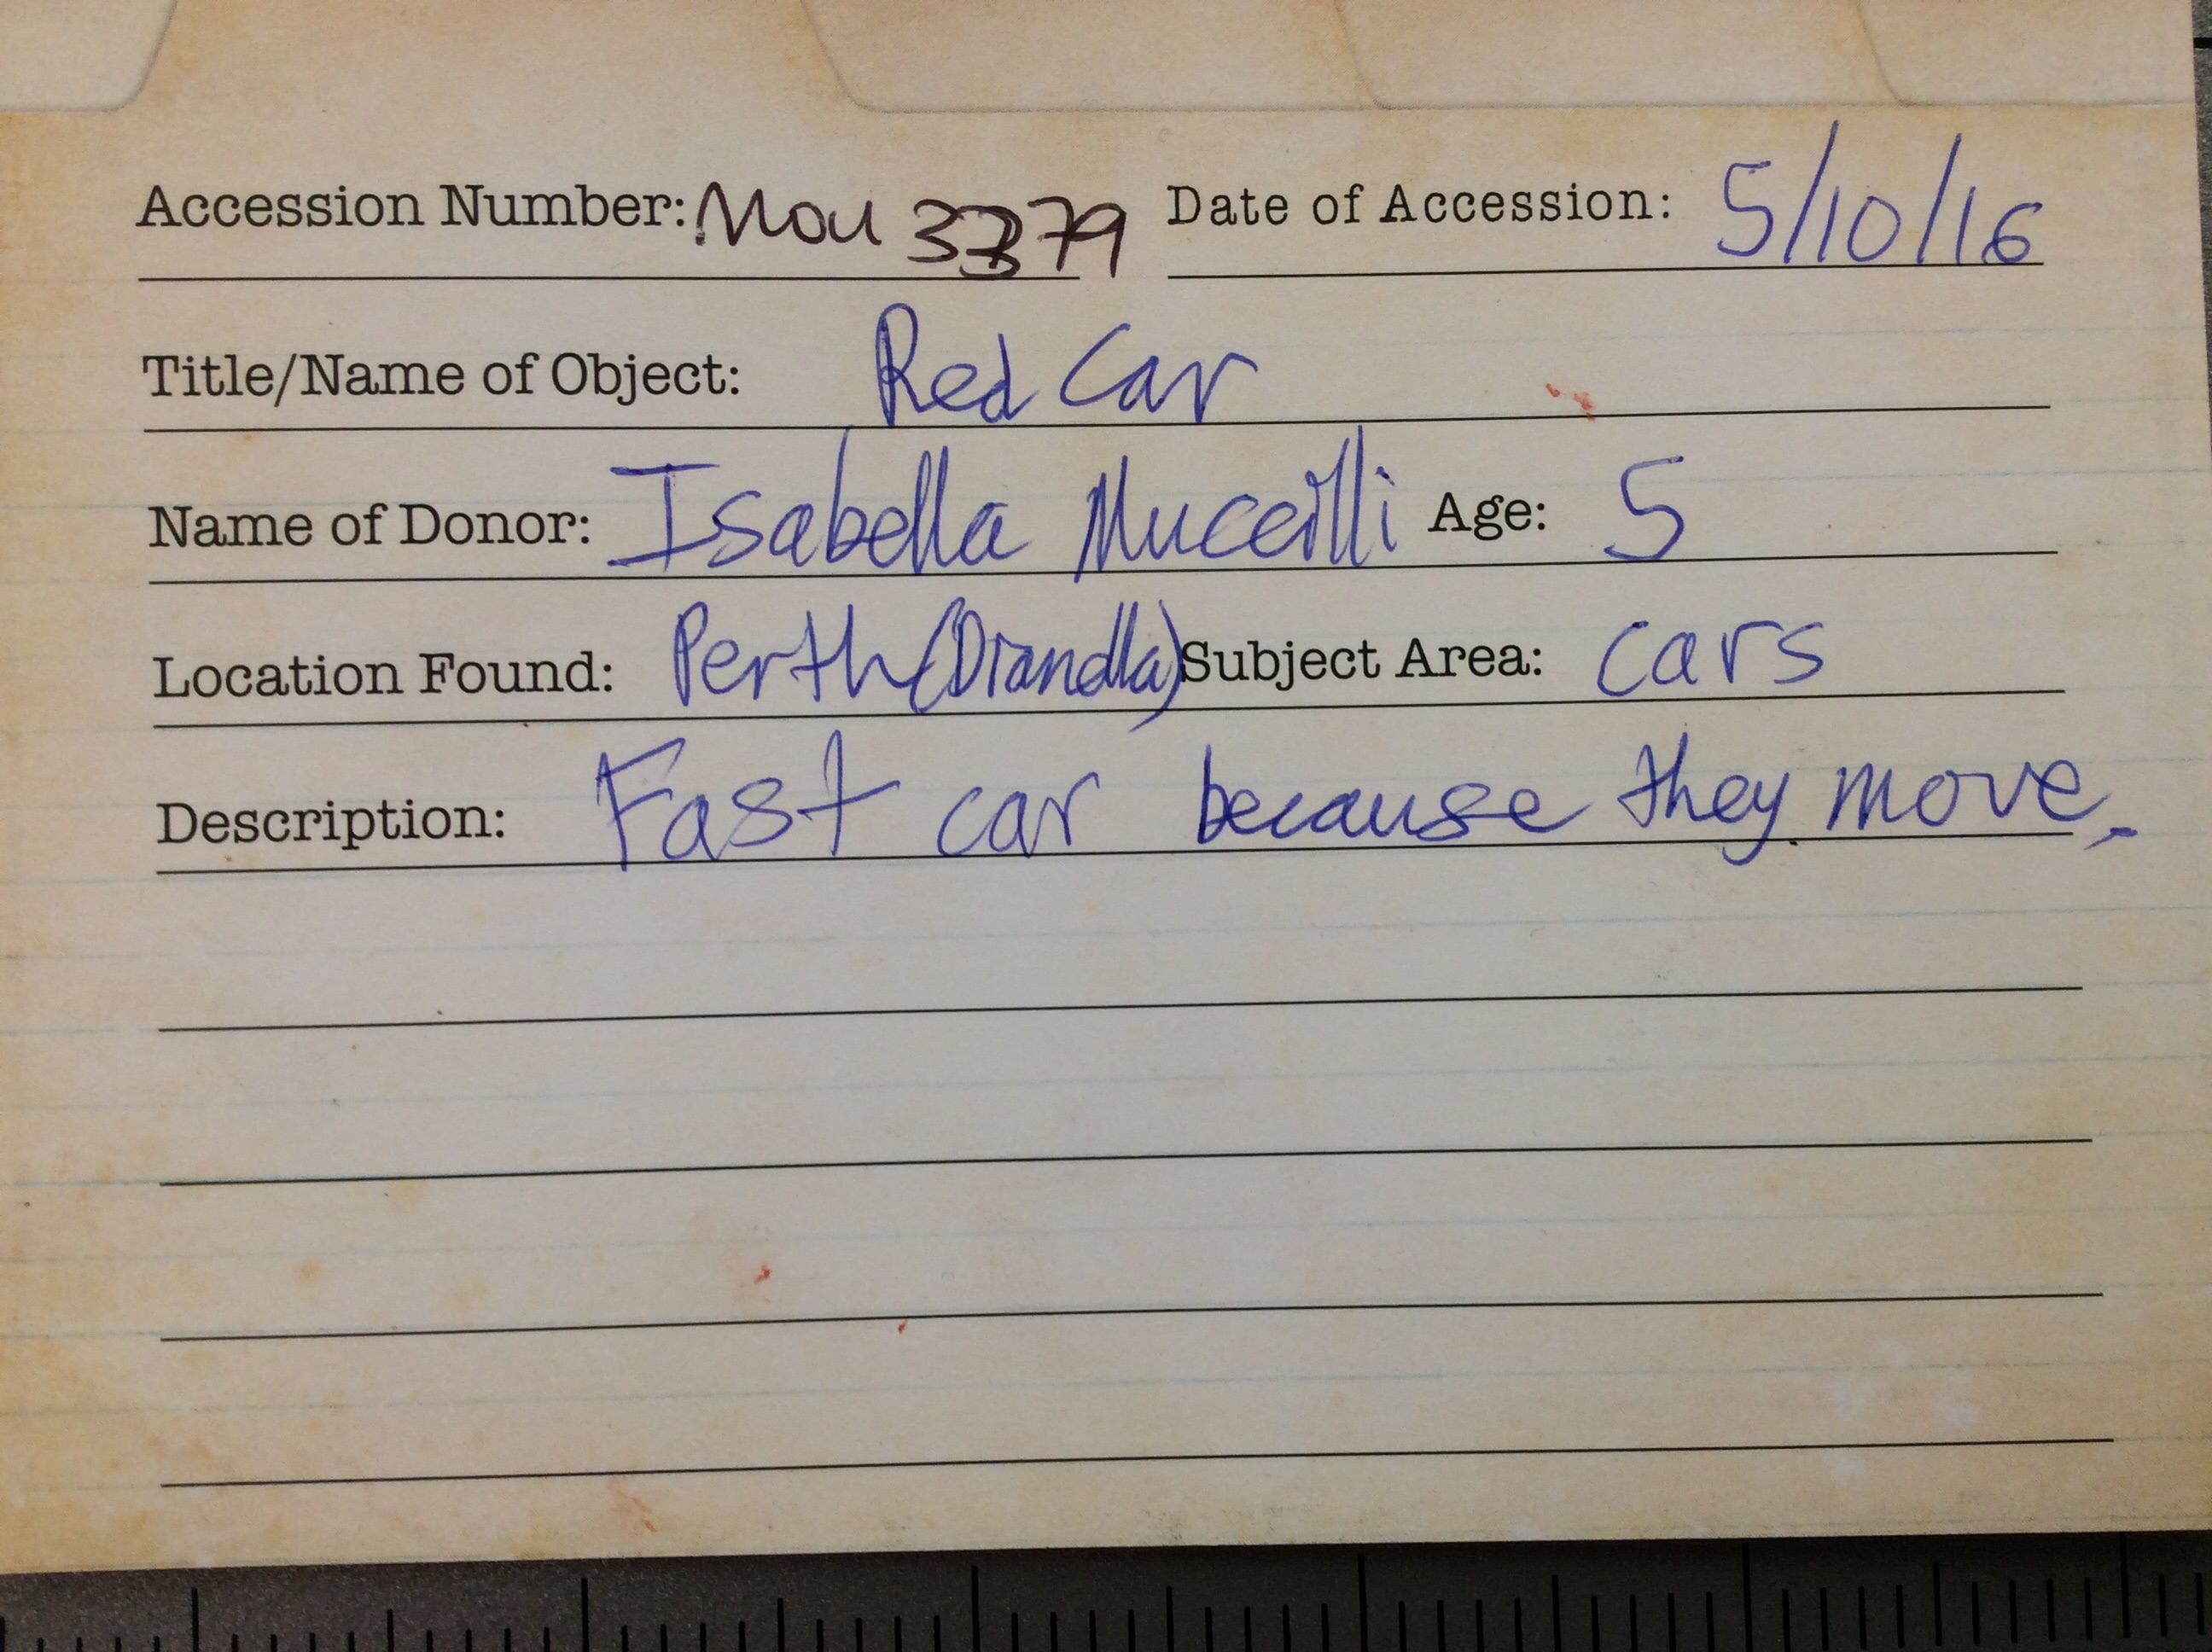 Accession Number: Mou 3379 Date of Accession: 5/10/16
Title/Name of Object: Red Car
Name of Donor: Isabella Age: 5
Location Found: Perth (Diandla) Subject Area: cars
Description: Fast car because they move.